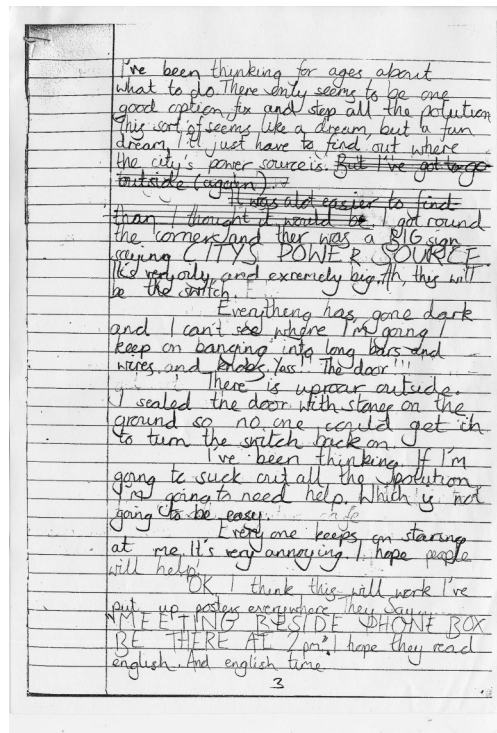 I've been thinking for ages about
what to do. There only seems to be one
good option fix and stop all the polution
This sort of seems like a dream, but a fun
dream, I'll just have to find out where
the city's power source is. But I've got to go
outside (again).
It was alot easier to find
than I thought it would be. I got round
the corner and ther was a BIG sign
saying CITYS POWER SOURCE
It's very oily and exremely big. Ah, this will
be the switch.
Everytheng has gone dark
and I can't see where I'm going I
keep on banging into long bars and
wires and knobs. Yass!! The door!!!
There is uproar outside.
I sealed the door with stones on the
ground so no one could get in
to turn the switch back on.
I've been thinking. If I'm
going to suck out all the polution,
I'm going to need help. Which is not
going to be easy.
Every one keeps on staring
at me. It's very annoying. I hope people
will help!
OK I think this will work I've
put up posters everywhere. They say
"MEETING BESIDE PHONE BOX
BE THERE AT 2pm". I hope they read
english. And english time.
3